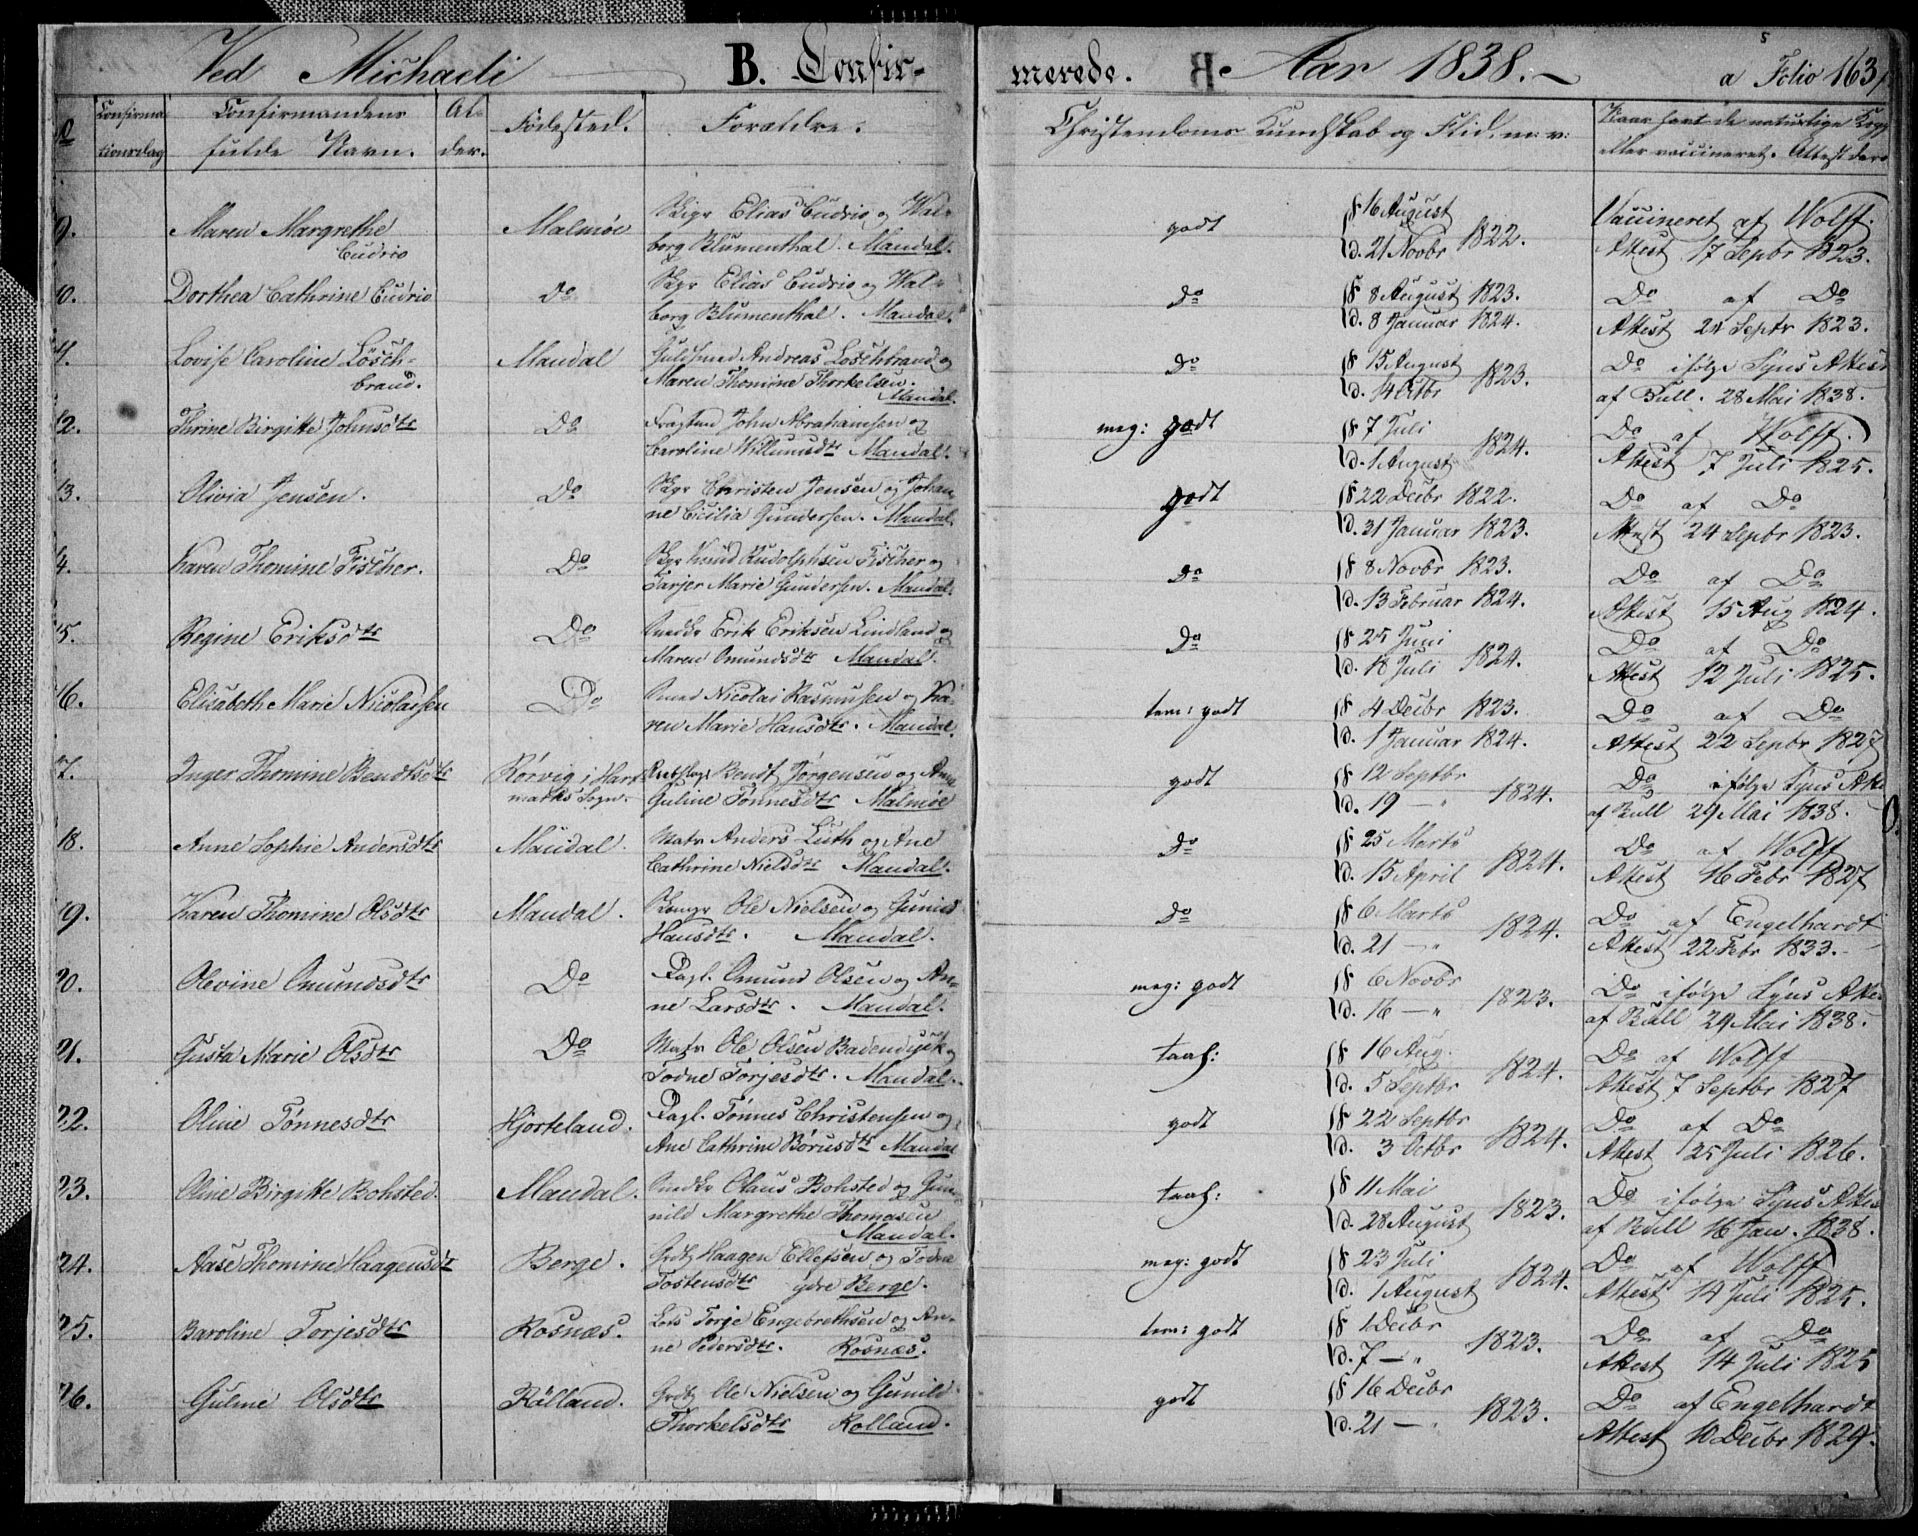 Ved Michaeli B. Confir-
merede. Aar 1838. a Folio 163
Confirma-
tionsdag
Confirmandens
fulde Navn.
Al-
der.
Fødested.
Forældre.
Christendoms Kundskab og Flid. m: v:
Naar havt de naturlige Kop
eller vaccineret. Attest der
9. Maren Margrethe
Cudrio
Malmöe
Skipr Elias Cudrio og Wal-
borg Blumenthal. Mandal.
godt
f 16 August
d. 21 Novbr 1822.
Vaccineret af Wolff.
Attest 17 Septbr 1823.
10. Dorthea Cathrine Cudrio
Do
Skpr Elias Cudrio og Wal-
borg Blumenthal. Mandal.
Do
f 8 August 1823.
d. 8 Januar 1824.
Do af Do
Attest 24 Septr 1823.
11. Lovise Caroline Lösch-
brand.
Mandal
Guldsmed Andreas Loschbrand og
Maren Thomine Thorkelsen.
Mandal.
Do
f 15 August
d. 14 Octbr 1823.
Do ifølge Syns Attest
af Bull. 28 Mai 1838.
12. Thrine Birgitte Johnsdtr
Do
John Abrahamsen og
Caroline Willumsdtr Mandal.
meg: godt
f 7 Juli
d. 1 August 1824.
Do af Wolff.
Attest 7 Juli 1825.
13. Olivia Jensen.
Do
Skpr Christen Jensen og Johan-
ne Cicilia Gundersen. Mandal.
godt
f 22 Decbr 1822.
d. 31 Januar 1823.
Do af Do
Attest 24 Septbr 1823.
14. Karen Thomine Fischer.
Do
Skpr Knud Rudolphsen Fischer og
Tarjer Marie Gundersen. Mandal.
Do
f 8 Novbr 1823.
d. 13 Februar 1824.
Do af Do
Attest 15 Aug 1824.
15. Regine Eriksdtr
Do
Snedkr Erik Eriksen Lindland og
Maren Omundsdtr Mandal.
Do
f 25 Juni
d. 18 Juli 1824.
Do af Do
Attest 12 Juli 1825.
16. Elisabeth Marie Nicolaisen
Do
Smed Nicolai Rasmussen og Ka-
ren Marie Hansdtr. Mandal.
tem: godt
f 4 Decbr 1823.
d. 1 Januar 1824.
Do af Do
Attest 22 Septbr 1827
17. Inger Thomine Bendtsdtr
Rørvig i Hart
marks Sogn.
Rebslagr Bendt Jørgensen og Ane
Guline Tønnesdtr Malmöe
godt
f 12 Septbr
d. 19 — " 1824.
Do ifølge Syns Atte
af Bull 29 Mai 1838.
18. Anne Sophie Andersdtr
Mandal.
Matr Anders Luth og Ane
Cathrine Nielsdtr Mandal.
Do
f 25 Marts
d. 15 April 1824.
Do af Wolff
Attest 16 Febr 1827
19. Karen Thomine Olsdtr
Mandal.
Ole Nielsen og Gunild
Hansdtr. Mandal.
Do
f 6 Marts
d. 21 — " 1824.
Do af Engelhardt
Attest 22 Febr 1833.
20. Olevine Omundsdtr
Do
Dagl. Omund Olsen og An-
ne Larsdtr. Mandal.
meg: godt
f 6 Novbr
d. 16 — " 1823.
Do ifølge Syns Atte
af Bull 29 Mai 1838.
21. Gusta Marie Olsdtr
Do
Matr Ole Olsen Badendyck og
Todne Torjesdtr. Mandal.
taal:
f 16 Aug.
d. 5 Septbr 1824.
Do af Wolff
Attest 7 Septbr 1827
22. Oline Tønnesdtr
Hjorteland.
Dagl. Tønnes Christensen og
Ane Cathrine Börusdtr Mandal
godt
f 22 Septbr
d. 3 Octbr 1824.
Do af Do
Attest 25 Juli 1826.
23. Oline Birgitte Bohsted.
Mandal.
Snedkr Olaus Bohsted og Gun-
nild Margrethe Thomasen
Mandal.
taal:
f 11 Mai
d. 28 August 1823.
Do ifølge Syns Attes
af Bull 16 Jan. 1838.
24. Aase Thomine Haagensdtr
Berge.
Grdbr Haagen Ellefsen og Todne
Tostensdtr ydre Berge.
meg: godt
f 23 Juli
d. 1 August 1824.
Do af Wolff
Attest 14 Juli 1825.
25. Baroline Torjesdtr
Rosnæs.
Lods Torje Engebrethsen og An-
ne Pedersdtr. Rosnæs.
tem: godt
f 1 Decbr
d. 7 — " 1823.
Do af Do
Attest 14 Juli 1825
26. Guline Olsdtr
Rölland.
Grdbr Ole Nielsen og Gunild
Thorkelsdtr Rolland.
godt
f 16 Decbr
d. 21 — " 1823.
Do af Engelhardt
Attest 10 Decbr 1829.